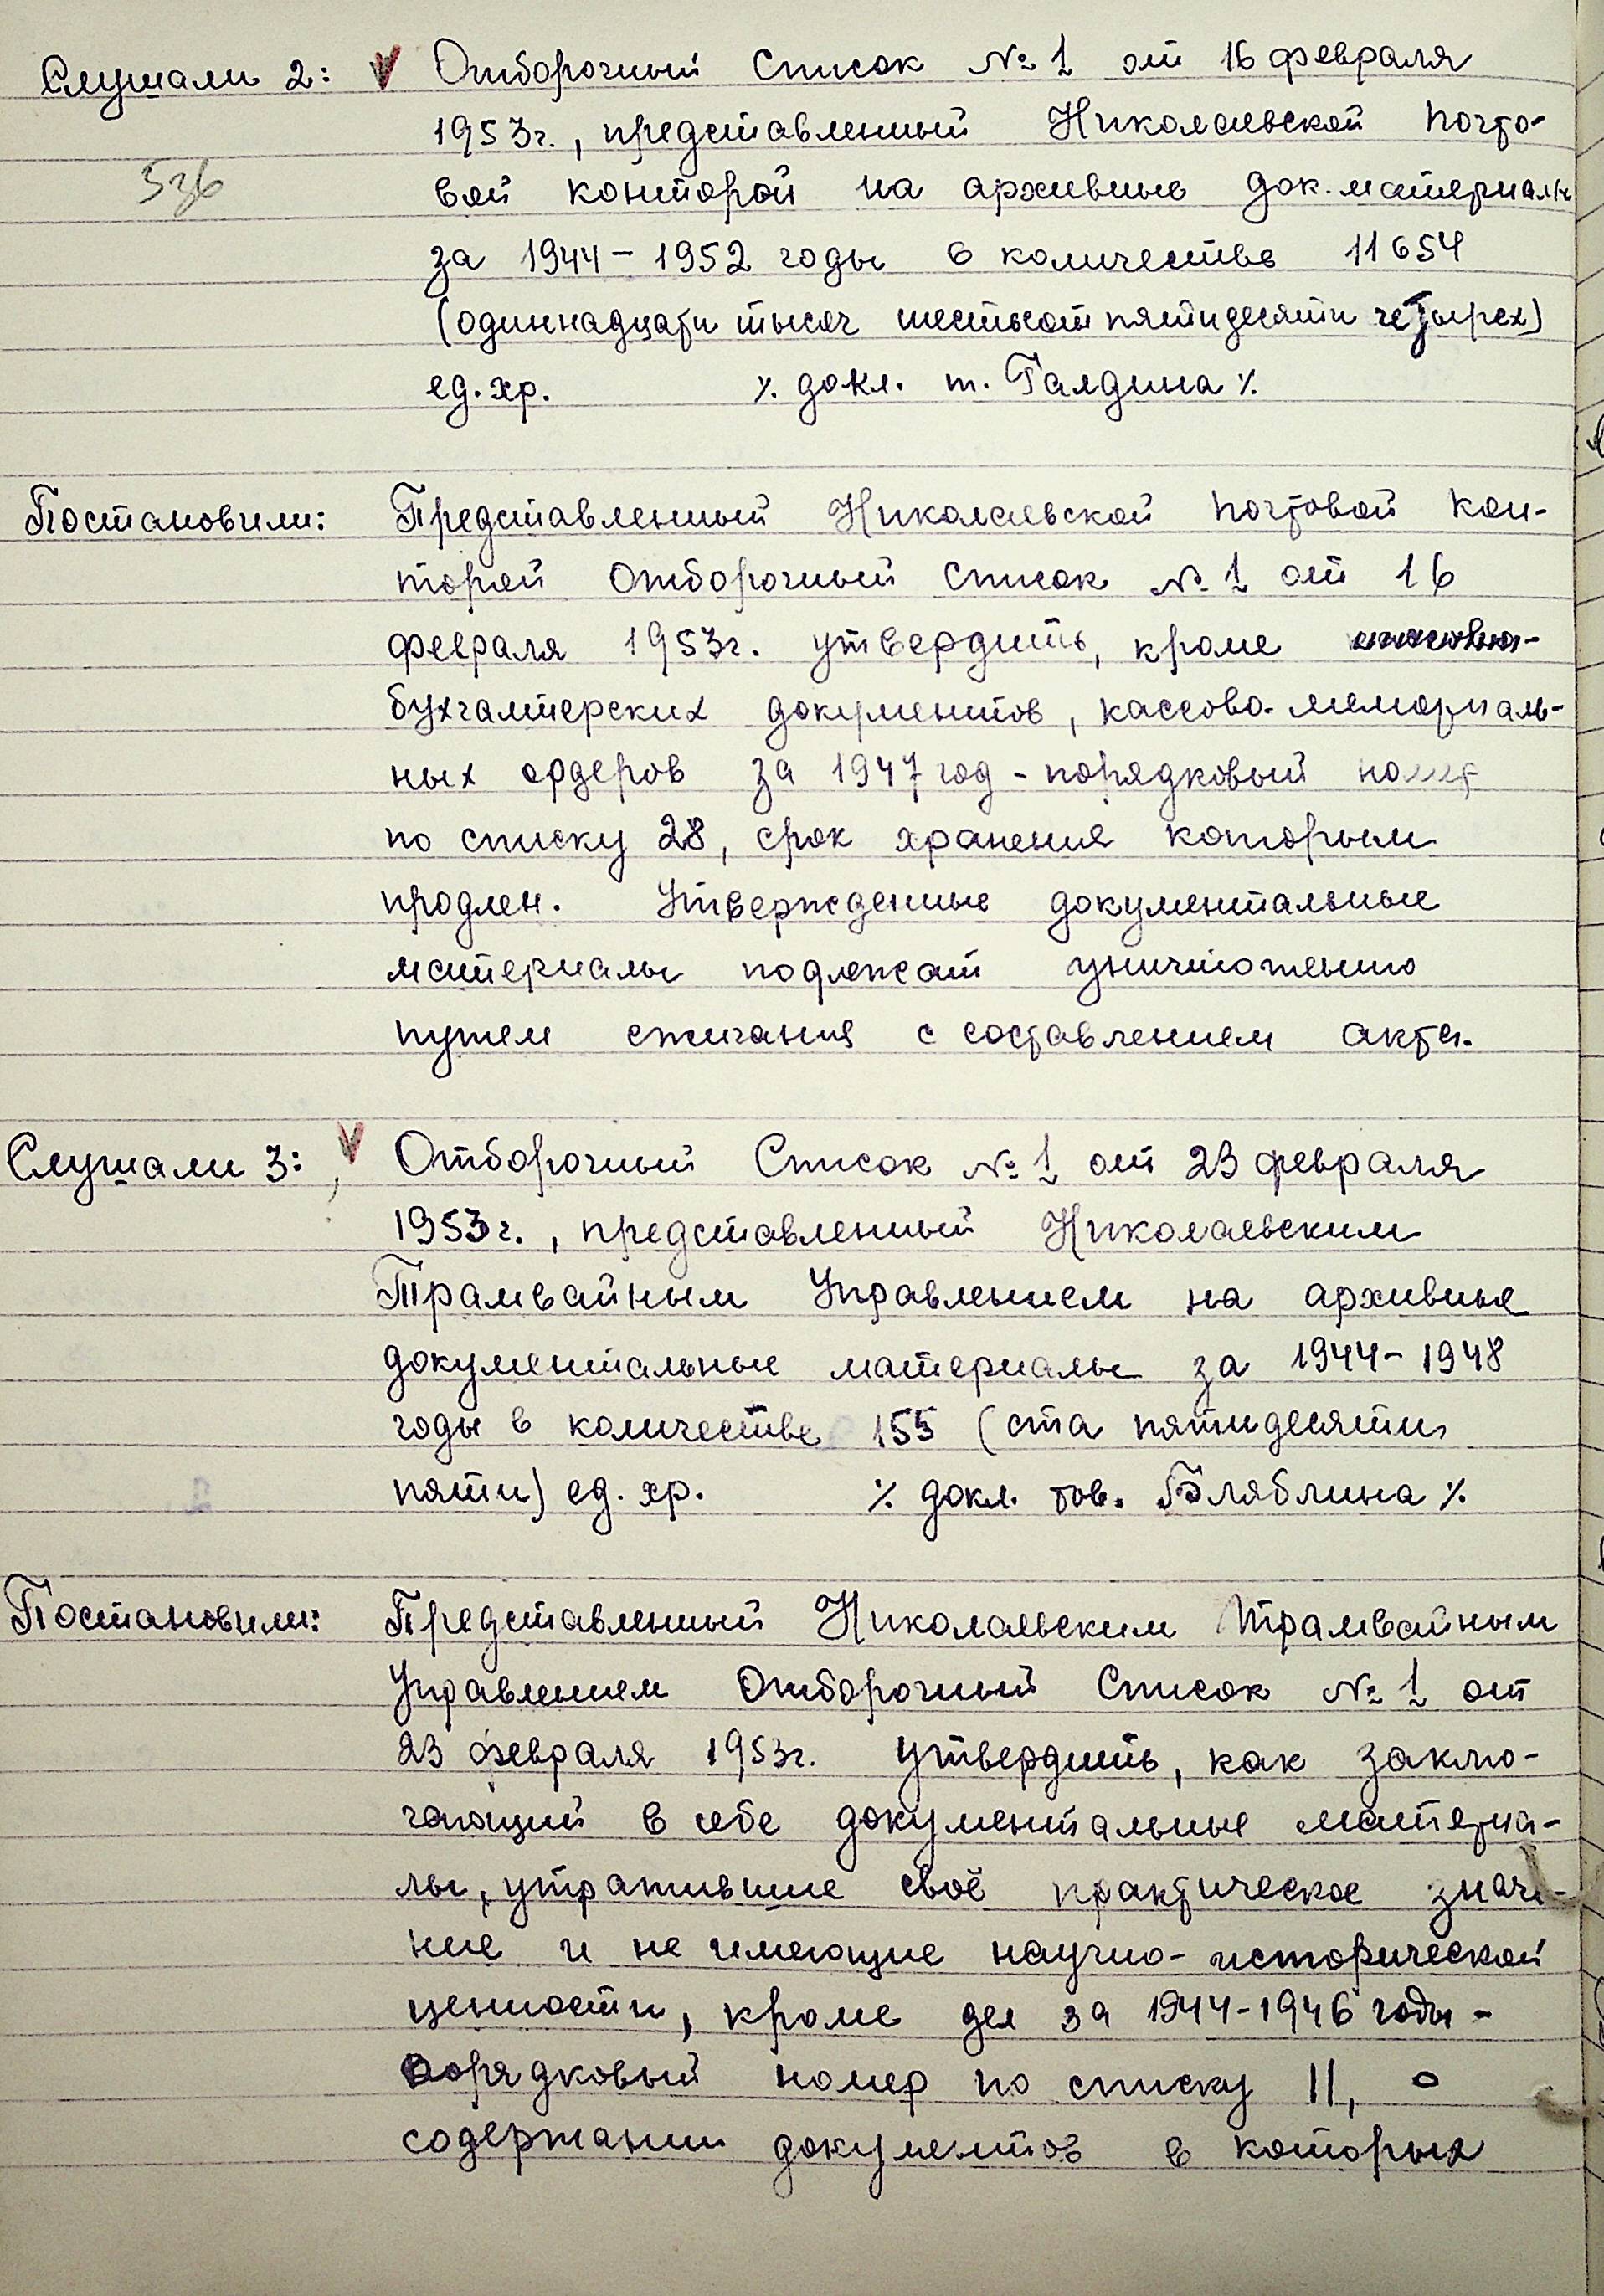 Слушали 2: V Отборочный Список № 1 от 16 февраля
1953г., представленный Николаевской почто-
536
вой конторой на архивные док. материалы
за 1944-1952 годы в количестве 11654
(одиннадцати тысяч шестьсот пятидесяти четырех)
ед. хр. ⁒ докл. т. Галдина ⁒
Постановили: Представленный Николаевской почтовой кон-
торой Отборочный список № 1 от 16
февраля 1953г. утвердить, кроме
бухгалтерских документов, кассово-мемориаль-
ных ордеров за 1947 год - порядковый номер
по списку 28, срок хранения которым
продлен. Утвержденные документальные
материалы подлежат уничтожению
путем сжигания с составлением акта.
Слушали 3: V Отборочный Список № 1 от 23 февраля
1953г., представленный Николаевским
Трамвайным Управлением на архивные
документальные материалы за 1944-1948
годы в количестве 155 (ста пятидесяти
пяти) ед. хр. ⁒ докл. тов. Бляблина ⁒
Постановили: Представленный Николаевским Трамвайным
Управлением Отборочный Список № 1 от
23 февраля 1953г. утвердить, как заклю-
чающий в себе документальные материа-
лы, утратившие своё практическое значе-
ние и не имеющие научно-исторической
ценности, кроме дел за 1944-1946 годы -
порядковый номер по списку 11, о
содержании документов в которых